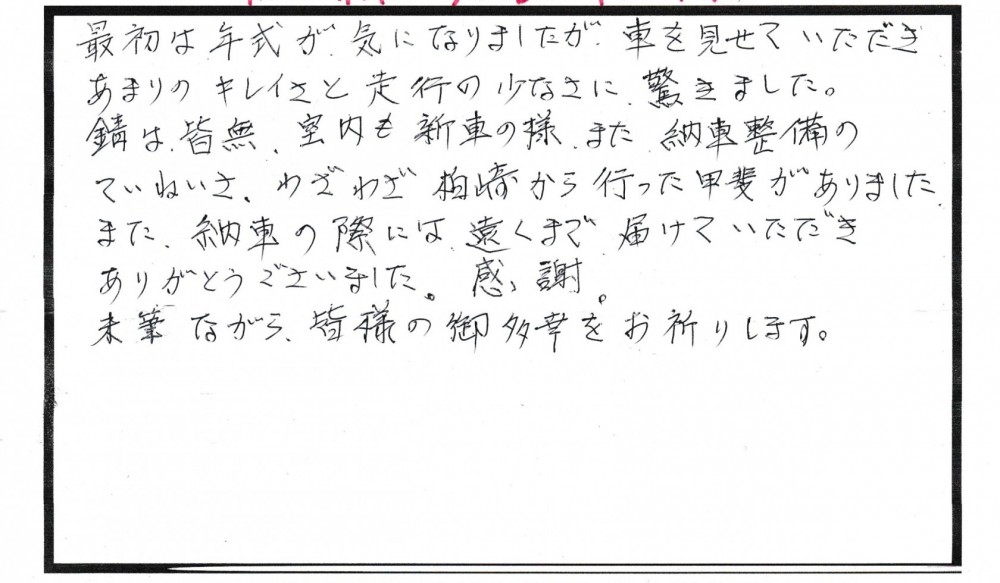 最初は年式が気になりましたが、車を見せていただき
あまりのキレイさと走行の少なさに、驚きました。
錆は、皆無、室内も新車の様、また、納車整備の
ていねいさ、わざわざ柏崎から行った甲斐がありました。
また、納車の際には、遠くまで届けていただき
ありがとうございました。感謝。
末筆ながら、皆様の御多幸をお祈りします。